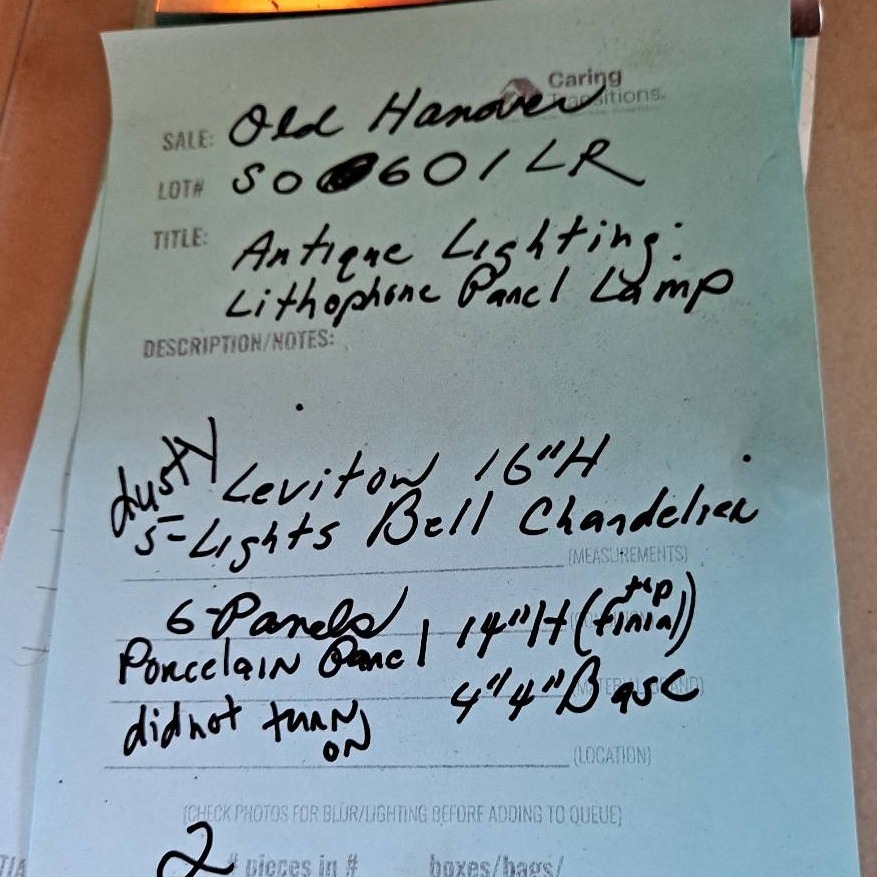 Caring
Transitions.
SALE: Old Hanover
LOT# SO 601LR
TITLE: Antique Lighting:
Lithophone Panel Lamp
DESCRIPTION/NOTES:
dusty Leviton 16"H
5-Lights Bell Chandelier
(MEASUREMENTS)
6-Panels 14"H (tip finial)
Porcelain Panel
4"4" Base
did not turn on
(LOCATION)
(CHECK PHOTOS FOR BLUR/LIGHTING BEFORE ADDING TO QUEUE)
2 # pieces in # boxes/bags/